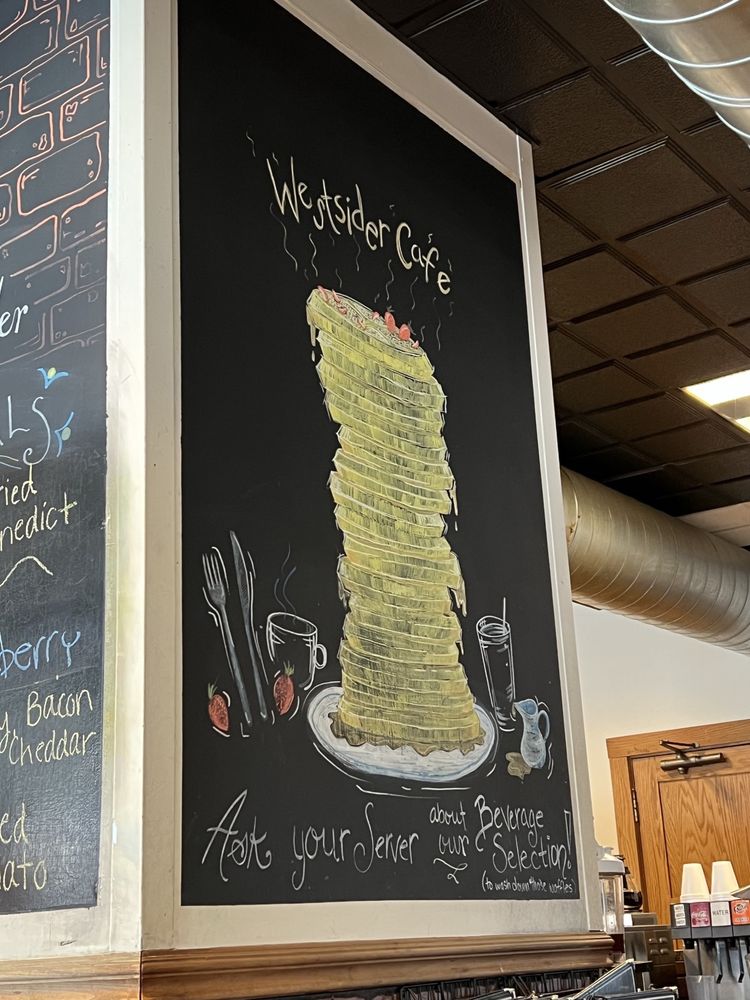 er
LS
ried
nedict
berry
y, Bacon
Cheddar
ed
ato
Westsider Cafe
Ask your Server about our Beverage Selection!
(to wash down those waffles)
WATER